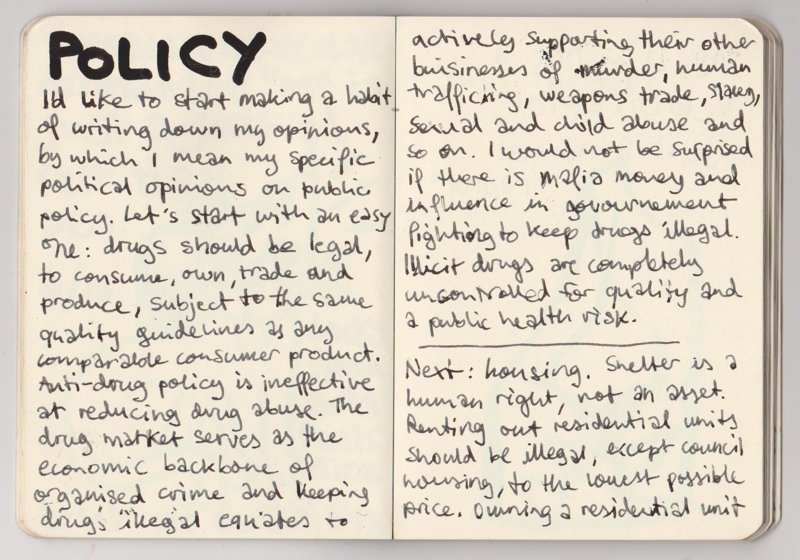 POLICY
I'd like to start making a habit
of writing down my opinions,
by which I mean my specific
political opinions on public
policy. Let's start with an easy
one: drugs should be legal,
to consume, own, trade and
produce, subject to the same
quality guidelines as any
comparable consumer product.
Anti-drug policy is ineffective
at reducing drug abuse. The
drug market serves as the
economic backbone of
organised crime and keeping
drugs illegal equates to
actively supporting their other
buisinesses of murder, human
trafficking, weapons trade, slavery,
sexual and child abuse and
so on. I would not be surprised
if there is mafia money and
influence in govournement
fighting to keep drugs illegal.
Illicit drugs are completely
uncontrolled for quality and
a public health risk.
Next: housing. Shelter is a
human right, not an asset.
Renting out residential units
should be illegal, except council
housing, to the lowest possible
price. Owning a residential unit